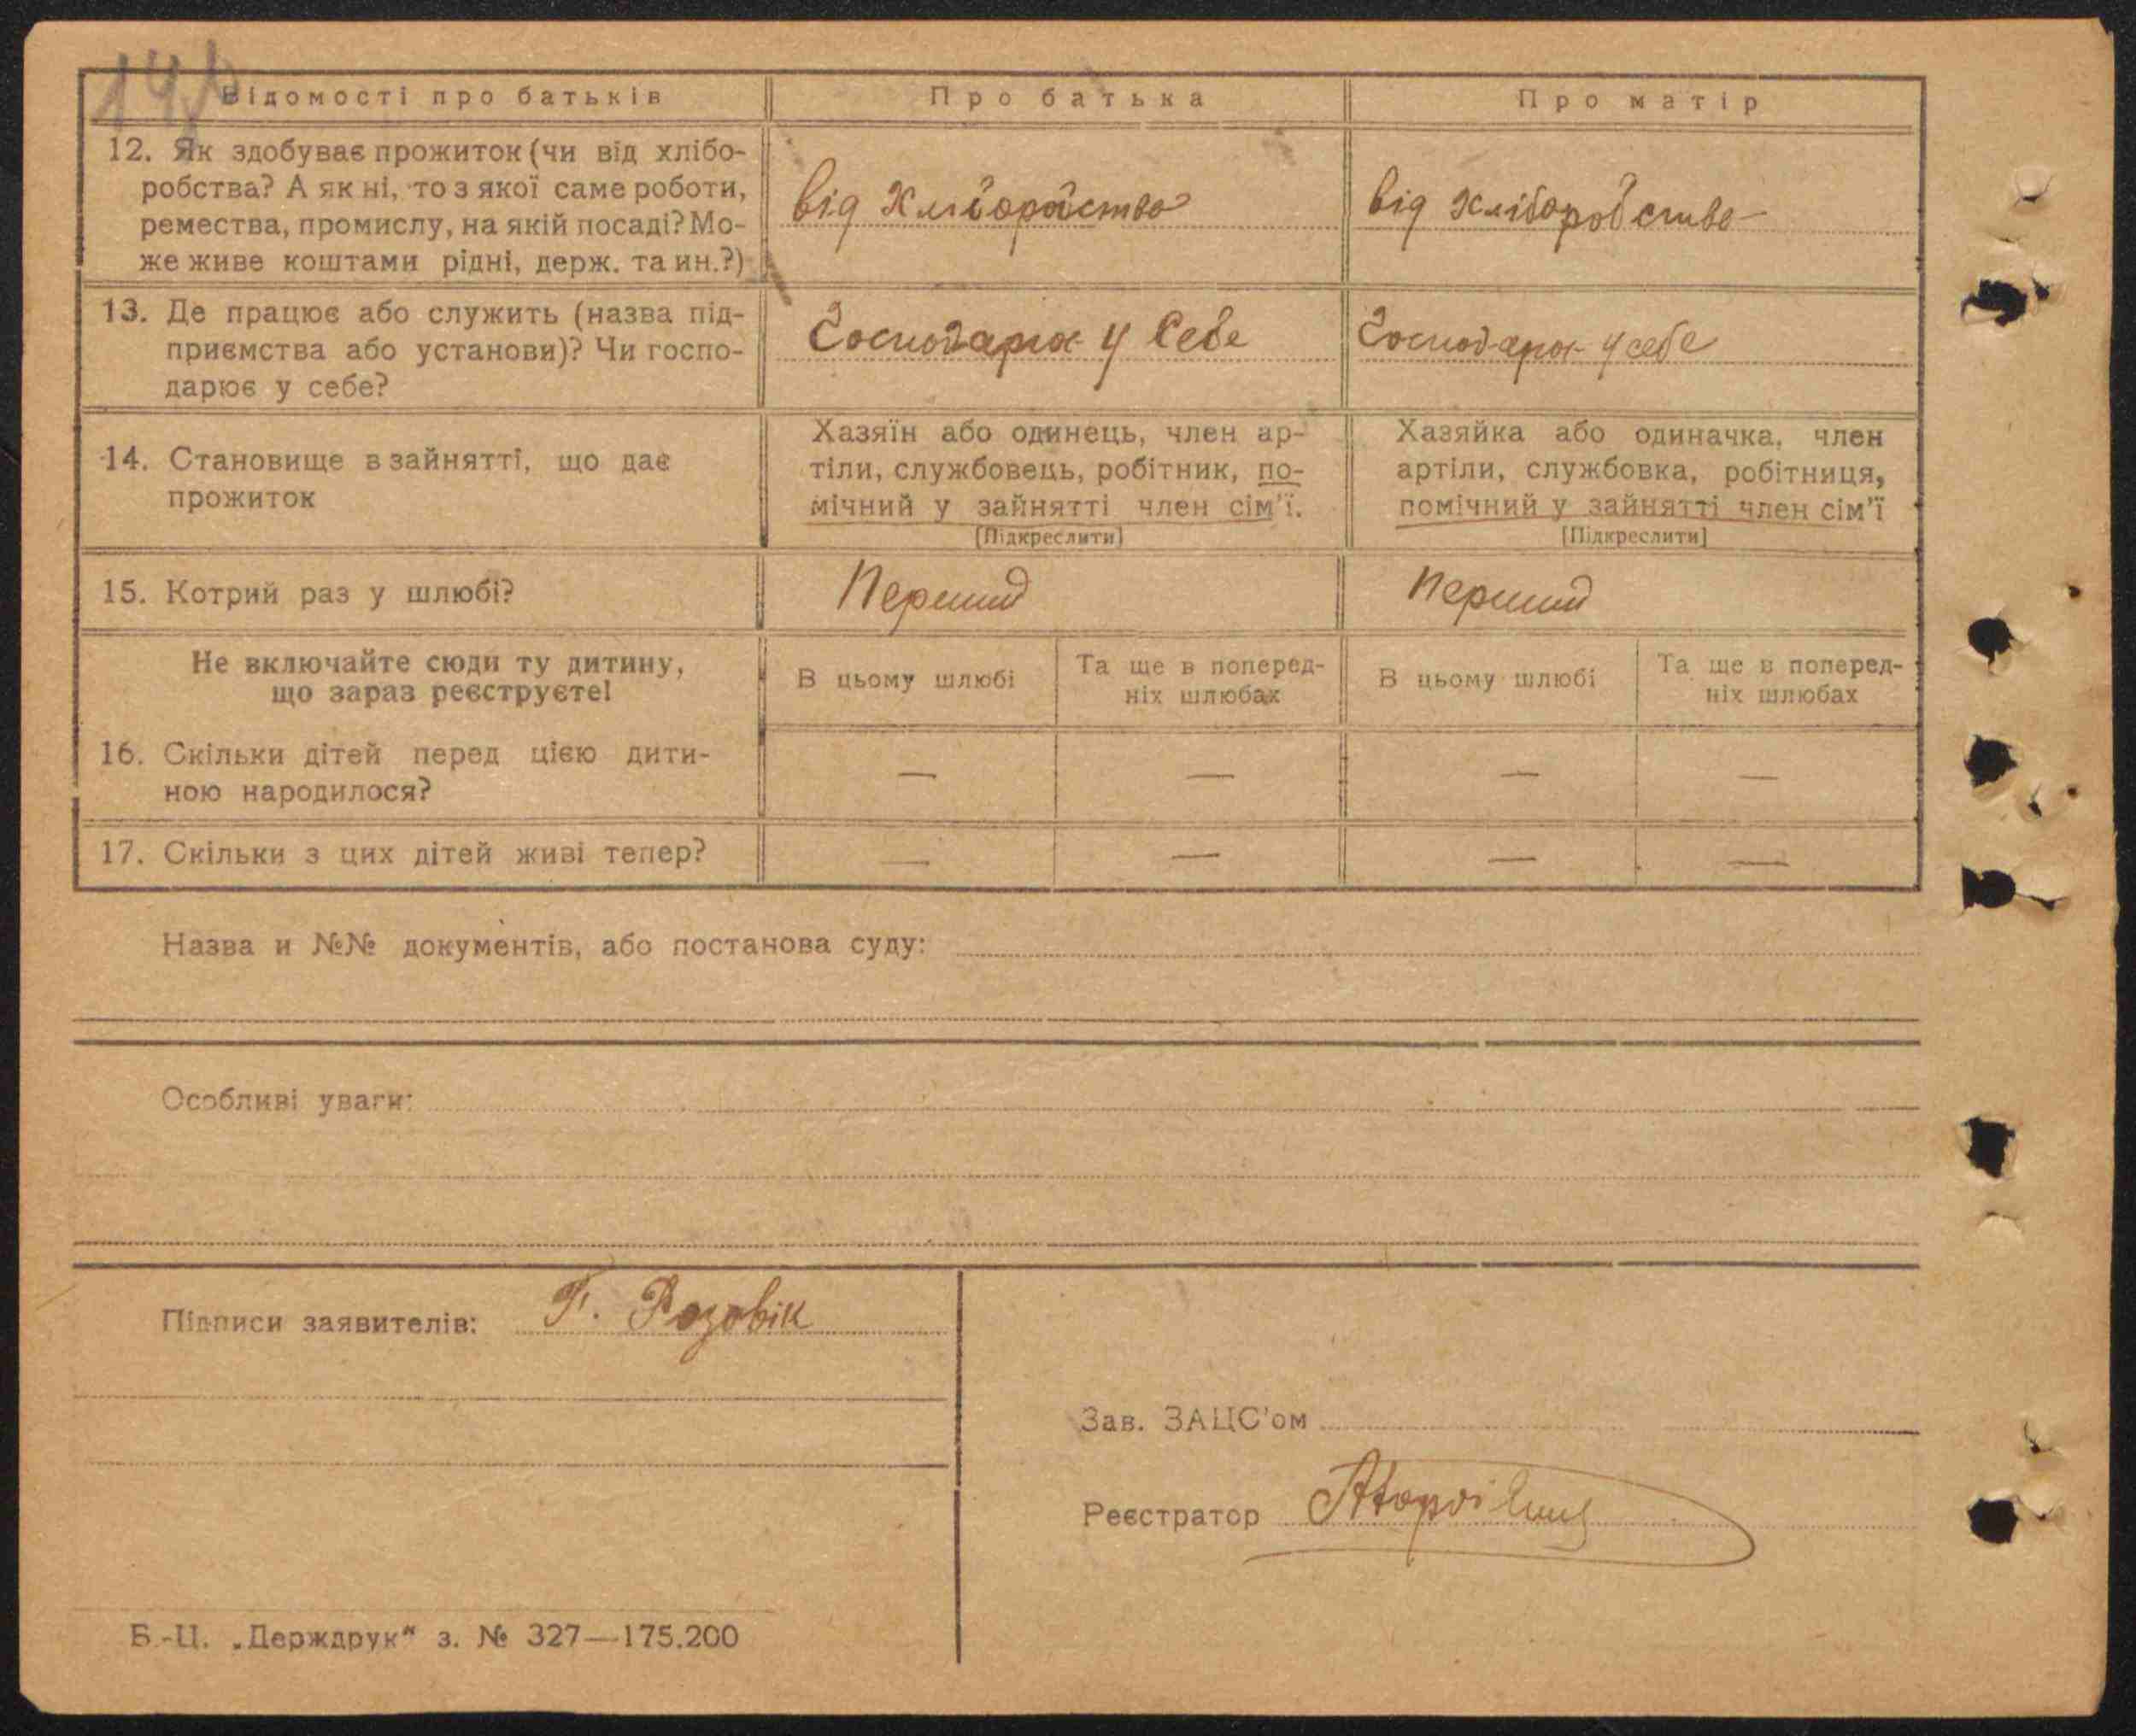 Відомості про батьків
Про батька
Про матір
12. Як здобуває прожиток (чи від хлібо-
робства? А як ні, то з якої саме роботи,
ремества, промислу, на якій посаді? Мо-
же живе коштами рідні, держ. та ин.?)
від хліборобства
від хліборобства
13. Де працює або служить (назва під-
приємства або установи)? Чи госпо-
дарює у себе?
Господарює у себе
Господарює у себе
14. Становище в зайнятті, що дає
прожиток
Хазяїн або одинець, член ар-
тіли, службовець, робітник, по-
мічний у зайнятті член сім'ї.
[Підкреслити]
Хазяйка або одиначка, член
артіли, службовка, робітниця,
помічний у зайнятті член сім'ї
[Підкреслити]
15. Котрий раз у шлюбі?
Перший
Перший
Не включайте сюди ту дитину,
що зараз реєструєте!
В цьому шлюбі
Та ще в поперед-
ніх шлюбах
В цьому шлюбі
Та ще в поперед-
ніх шлюбах
16. Скільки дітей перед цією дити-
ною народилося?
— — — —
17. Скільки з цих дітей живі тепер?
— — — —
Назва и №№ документів, або постанова суду:
Особливі уваги:
Підписи заявителів: Г. Розовік
Зав. ЗАЦС'ом
Реєстратор
Б.-Ц. „Держдрук" з. № 327—175.200